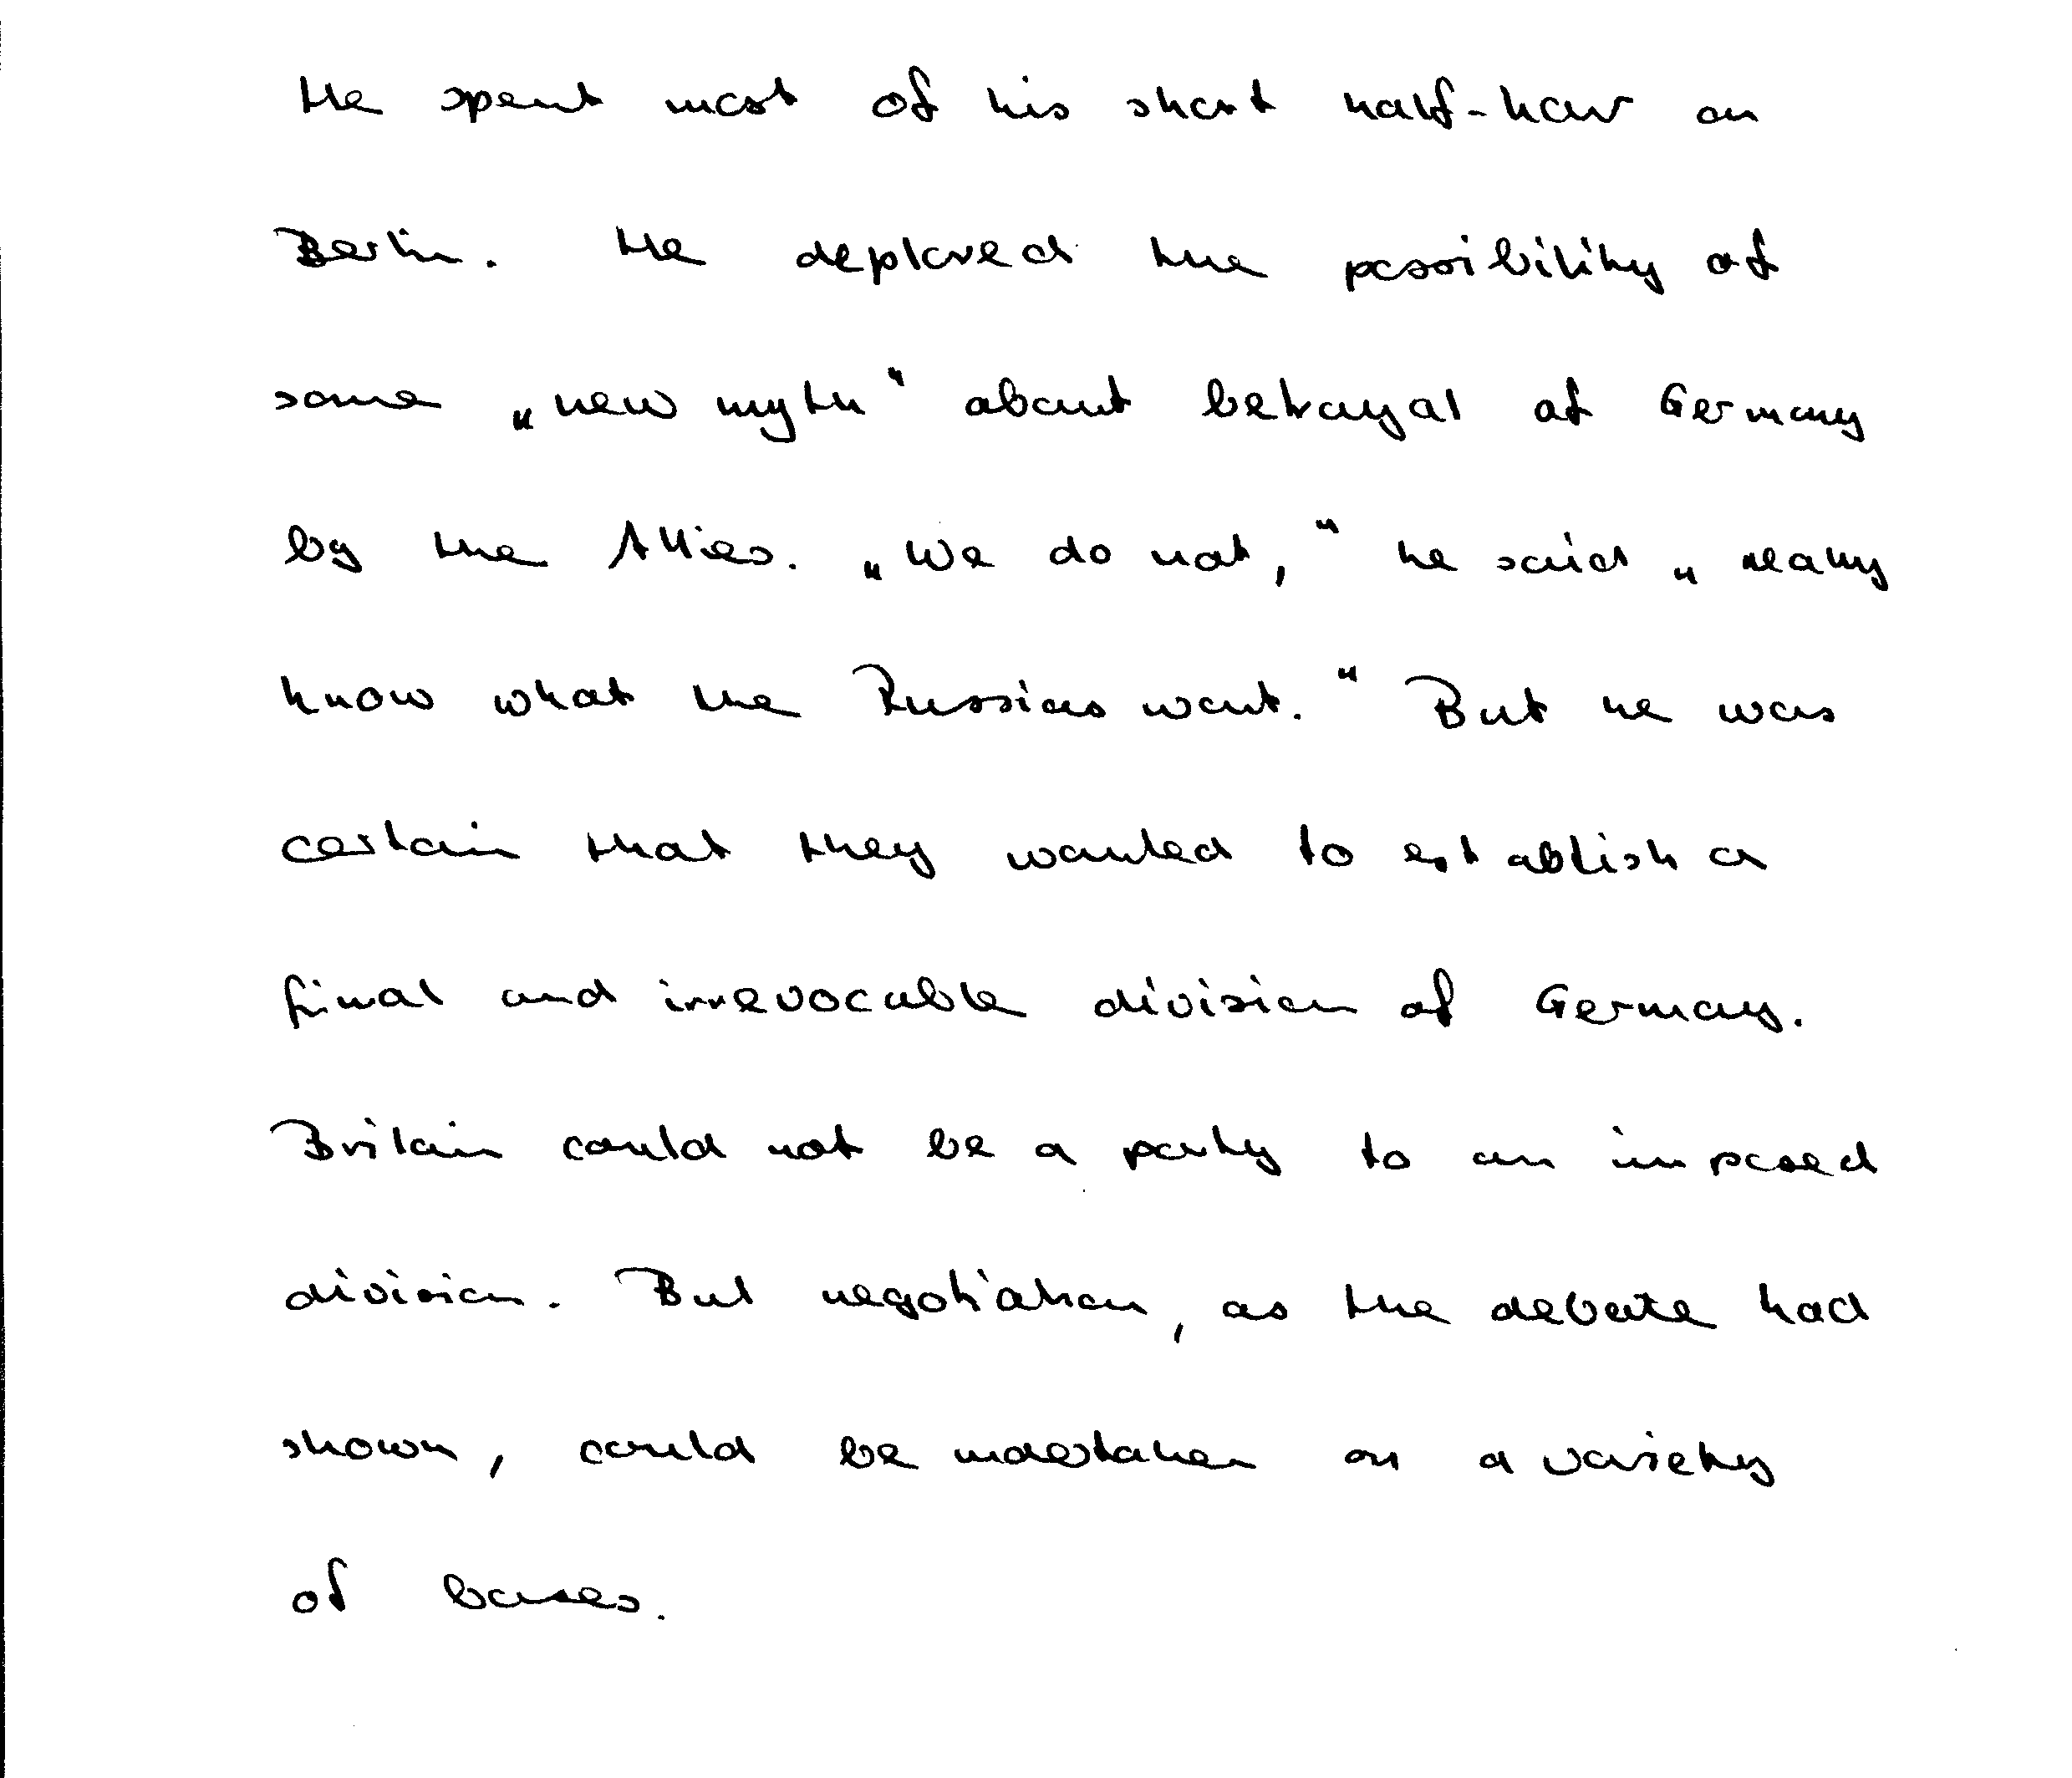 He spent most of his short half-hour on
Berlin. He deplored the possibility of
some „new myth“ about betrayal of Germany
by the Allies. „We do not,“ he said „really
know what the Russias want.“ But he was
certain that they wanted to establish a
final and irrevocable division of Germany.
Britain could not be a party to an imposed
division. But negotiation, as the debate had
shown, could be undertaken on a variety
of bases.